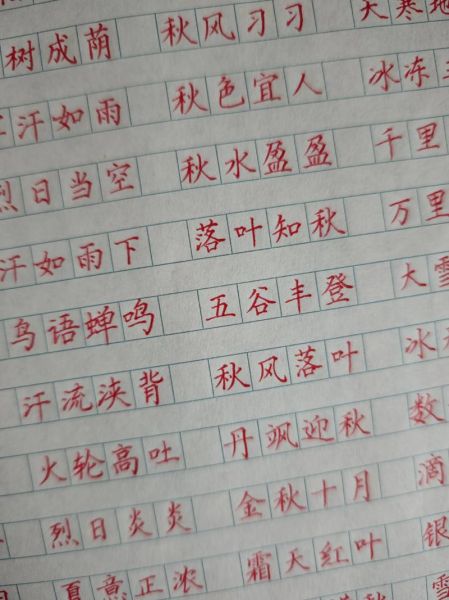 树成荫 秋风习习 天寒地
汗如雨 秋色宜人 冰冻三
烈日当空 秋水盈盈 千里
汗如雨下 落叶知秋 万里
鸟语蝉鸣 五谷丰登 大雪
汗流浃背 秋风落叶 冰天
火轮高吐 丹飒迎秋 数
烈日炎炎 金秋十月 滴
夏意正浓 霜天红叶 银